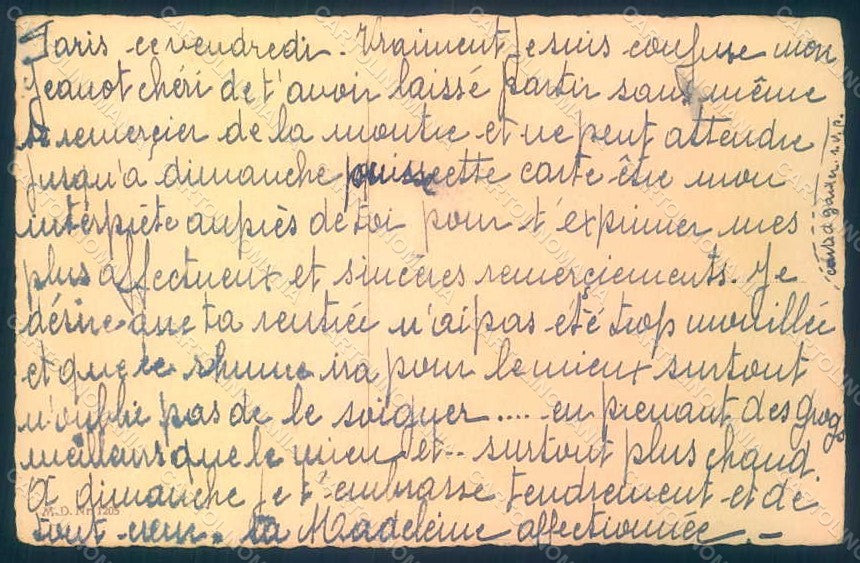 Paris ce vendredi. Vraiment je suis confuse mon
Jeanot chéri de t'avoir laissé partir sans même
te remerçier de la montre et ne peut attendre
jusqu'a dimanche puisse cette carte être mon
interpréte auprès de toi pour t'exprimer mes
plus affectueux et sincéres remerçiements. Je
désire que ta rentrée n'ai pas été trop mouillée
et que le rhume ira pour le mieux surtout
n'oublie pas de le soigner .... en prenant des grogs
meilleurs que le mien et .. surtout plus chaud.
A dimanche je t'embrasse tendrement et de
tout cœur. ta Madeleine affectionnée. -
M.D. Nr. 1205
CARTOLINOMANIA